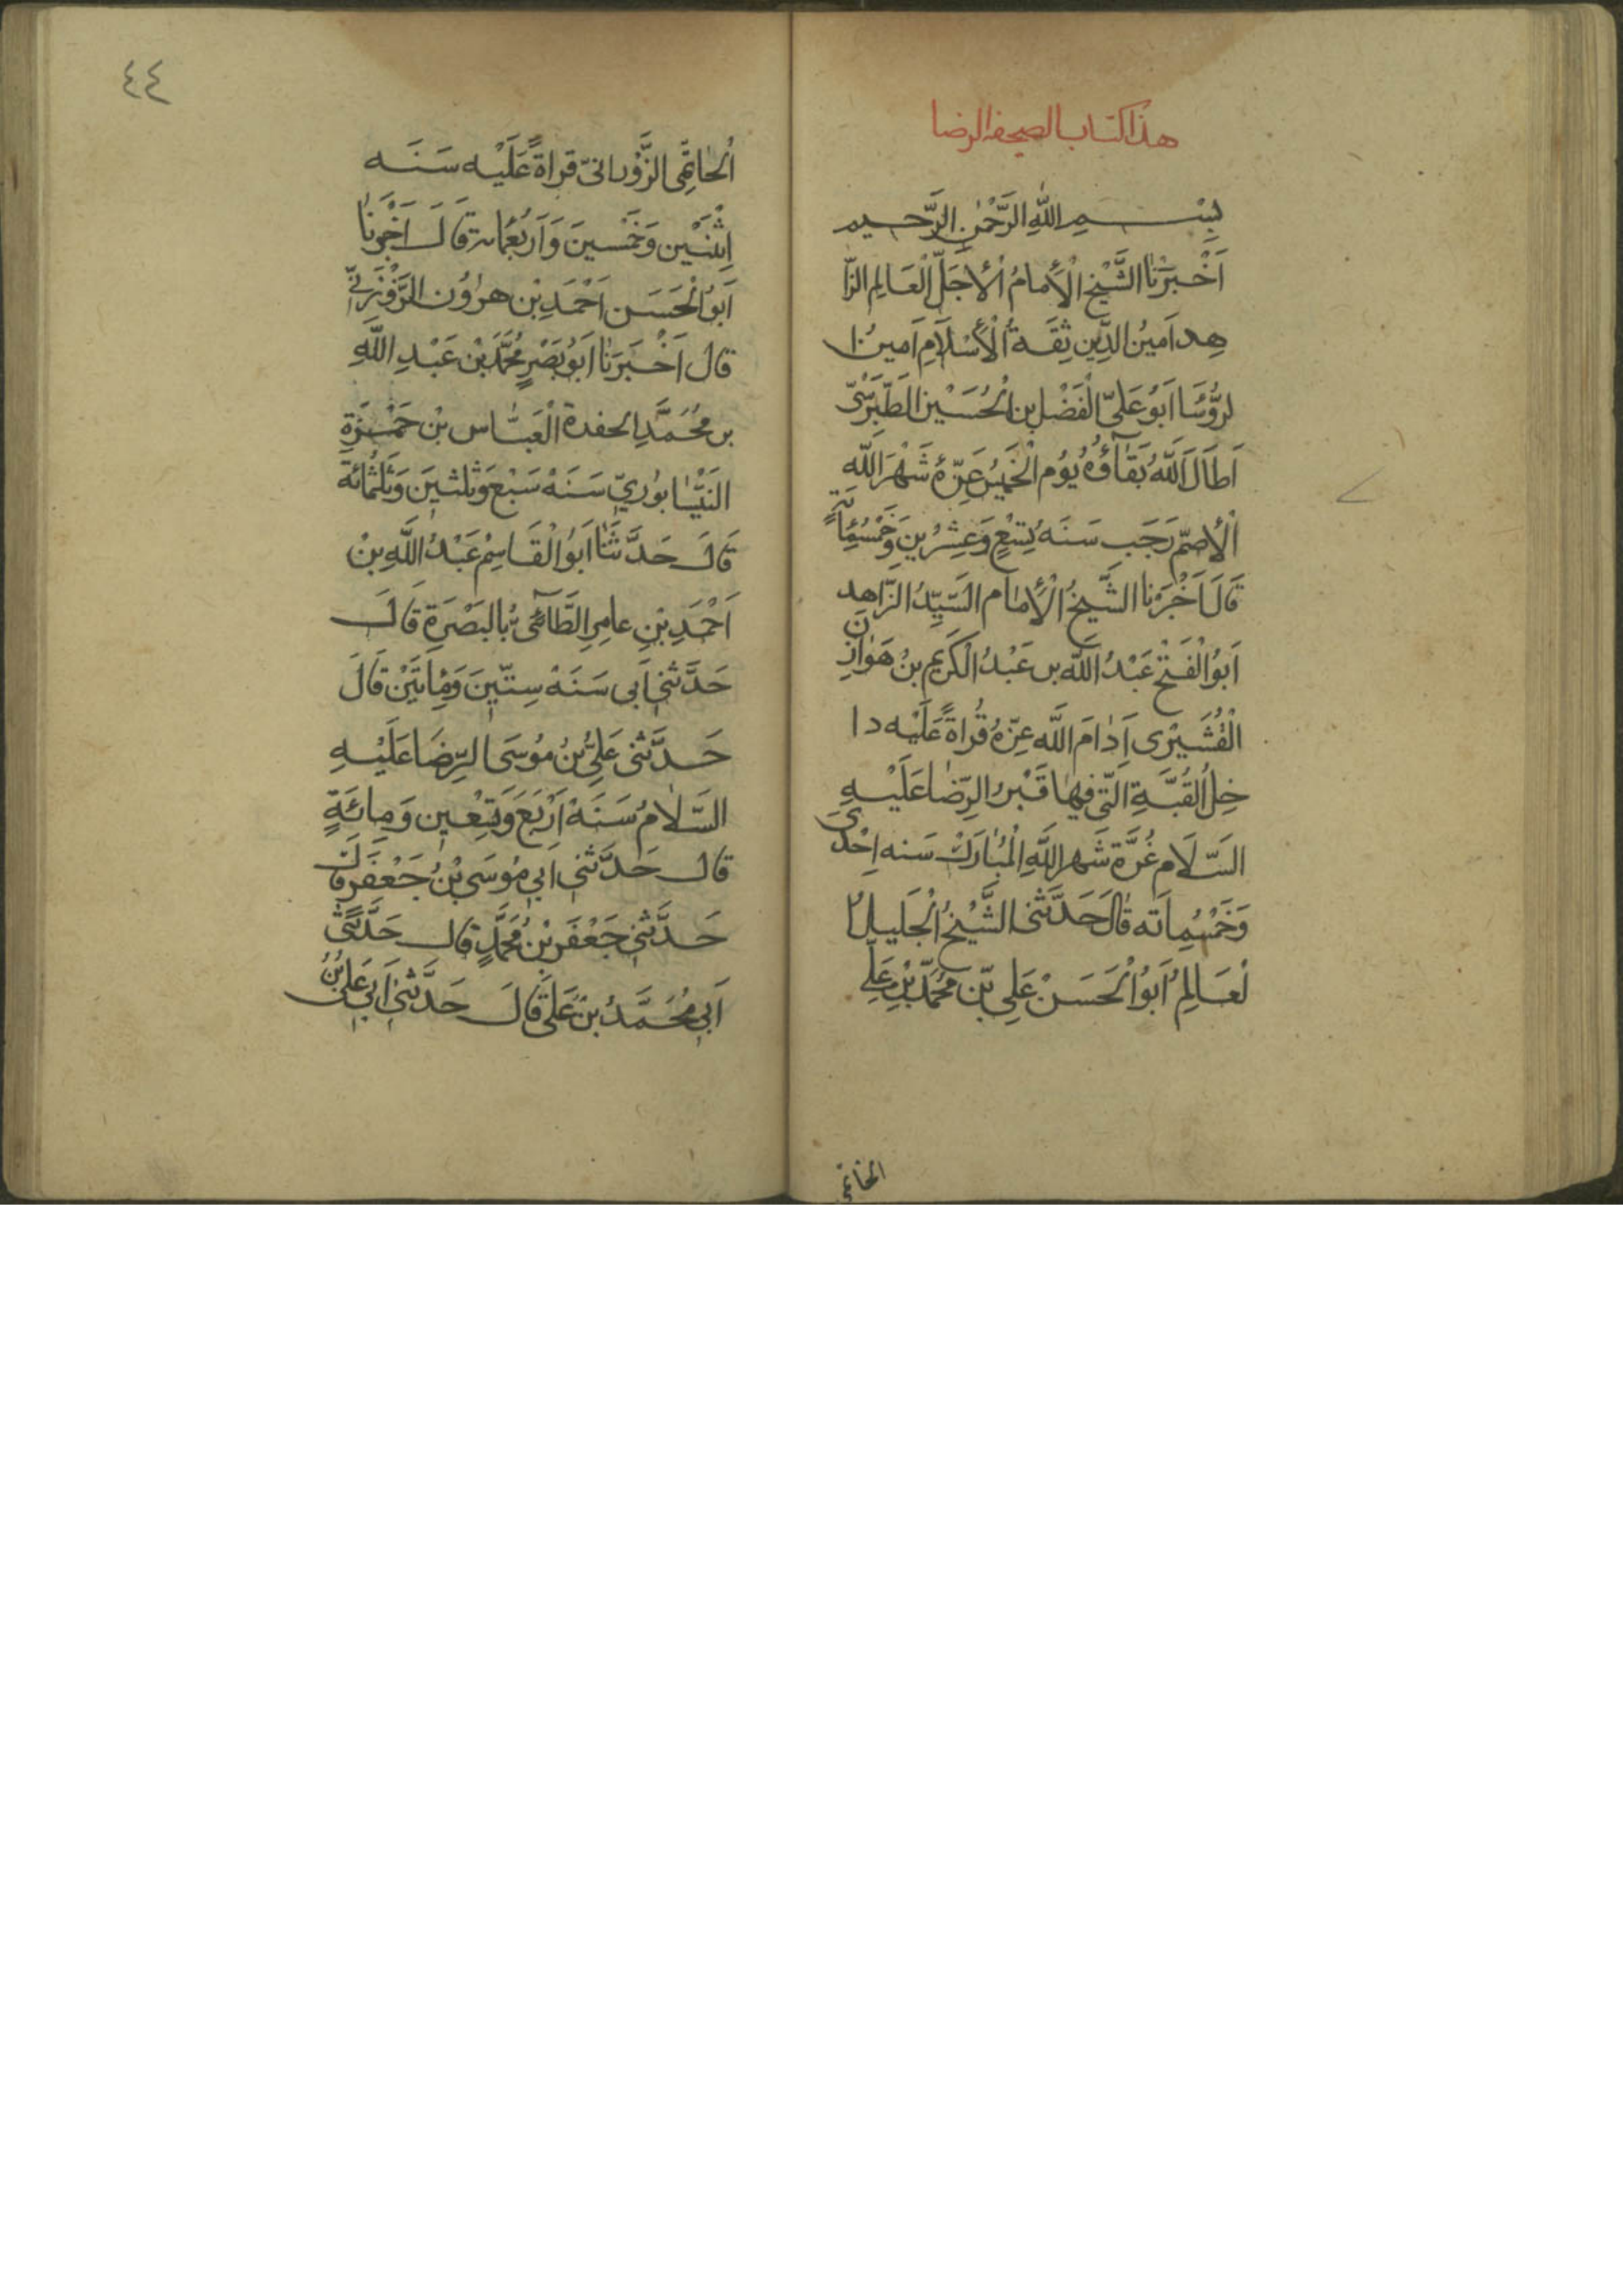 هذا كتاب الصحيفه الرضا
بِسْمِ اللهِ الرَّحْمٰنِ الرَّحيم
اَخْبَرَنَا الشَّيْخ الْأِمامُ الْأَجَلّ الْعَالِم الزّا
هِد اَمينُ الدِّين ثِقَةُ الْأِسْلَامِ اَمينُ ا
لرُّؤَسَا اَبوُ عَلىّ الْفَضْلِ بن الْحُسَيْن الطَّبَرْسىّ
اَطَالَ اللَّهُ بَقَاؤُهُ يَوُم الْخَميُس غرّة شَهْرَ اللَّه
الْأَصَمّ رَجَب سَنَه تِسْعٍ وَعِشْرينَ وَخَمْسُمِائةٍ
قَالَ اَخْبَرَنا الشَّيخُ الْأِمام السَّيِّدُ الزّاهِد
اَبوُ الْفَتْح عَبْدُ اللَّه بن عَبْدُ الْكَريم بنُ هَوازِن
الْقُشَيْرى اَدَامَ اللَّه عِزّهُ قُراةً عَلَيْه دا
خِلُ الْقُبَّةِ الَّتى فيها قَبْرُ الرِّضا عَلَيْهِ
السَّلَام غُرَّة شَهر اللَّهِ الْمُبٰارَك سَنه اِحْدىَ
وَخَمْسُمِاَئه قٰالَ حَدَّثَنى الشَّيْخُ الْجَليلُ ا
لْعَالِمُ اَبوُ الْحَسَنْ عَلِى بّن مُحَمَّد بْنِ عَلِى
الْحٰاتِمَّى الزَّوْزانىّ قراةً عَلَيْه سَنَه
اِثْنَيْنِ وَخَمْسينَ وَاَرْبَعُمائة قَالَ اَخْبَرَنٰا
اَبوُ الْحَسَن اَحْمَدِ بْن هٰروُن الزَّوْزَنىّ
قال اَخْبَرَنٰا اَبوُ نَصْرٍ مُحَمَّد بْن عَبْدِ اللَّهِ
بن مُحَمَّدِ الحفدة الْعَبَّاس بْن حَمْزَةِ
النَيْسٰابوُرىّ سَنَهْ سَبْع وَثلثينَ وَثَلٰثُمائَة
قَالَ حَدَّثَنٰا اَبوُ الْقَاسِمْ عَبْدُ اللَّهِ بنْ
اَحْمَدِ بْنِ عامِرِ الطَّائىّ بُالبَصْرَةِ قالَ
حَدَّثَنى اَبى سَنَهْ سِتّينَ وَمِأتَيَنْ قَالَ
حَدَّثَنى عَلىُّ بْنُ موُسَى الرِّضَا عَلَيْهِ
السَّلٰامُ سَنَهْ اَرْبَعَ وَتِسْعين وَمِائَةٍ
قال حَدَّثَنى ابى موُسَى بْنُ جَعْفَر قالَ
حَدَّثَنى جَعْفَر بْنُ مُحَمَّدٍ قال حَدَّثَنى
اَبى مُحَمَّدُ بْن عَلىَّ قَالَ حَدَّثَنى اَبى عَلى بْنُ
الحٰاتمى
٤٤